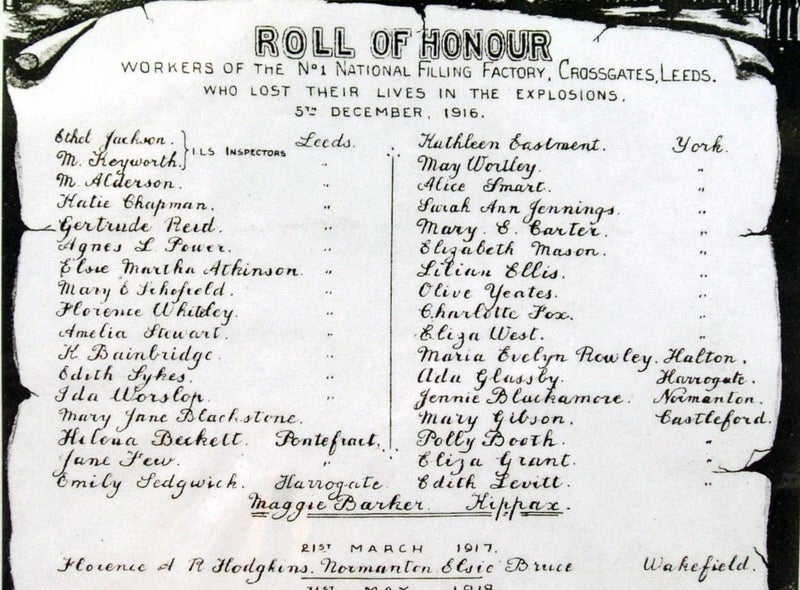 ROLL OF HONOUR
WORKERS OF THE No1 NATIONAL FILLING FACTORY, CROSSGATES, LEEDS.
WHO LOST THEIR LIVES IN THE EXPLOSIONS.
5TH DECEMBER, 1916.
Ethel Jackson. } I.L.S INSPECTORS Leeds.
M. Keyworth.
M. Alderson. "
Katie Chapman. "
Gertrude Reid. "
Agnes L Power. "
Elsie Martha Atkinson. "
Mary E Schofield. "
Florence Whiteley. "
Amelia Stewart. "
K Bainbridge. "
Edith Sykes. "
Ida Worslop. "
Mary Jane Blackstone.
Helena Beckett. Pontefract.
Jane Few. "
Emily Sedgwick. Harrogate.
Kathleen Eastment. York.
May Wortley. "
Alice Smart. "
Sarah Ann Jennings. "
Mary. E. Carter. "
Elizabeth Mason. "
Lilian Ellis. "
Olive Yeates. "
Charlotte Fox. "
Eliza West. "
Maria Evelyn Rowley. Halton.
Ada Glassby. Harrogate.
Jennie Blackamore. Normanton.
Mary Gibson. Castleford.
Polly Booth. "
Eliza Grant. "
Edith Levitt. "
Maggie Barker. Kippax.
21ST MARCH 1917.
Florence A R Hodgkins. Normanton. Elsie Bruce Wakefield.
31ST MAY 1918